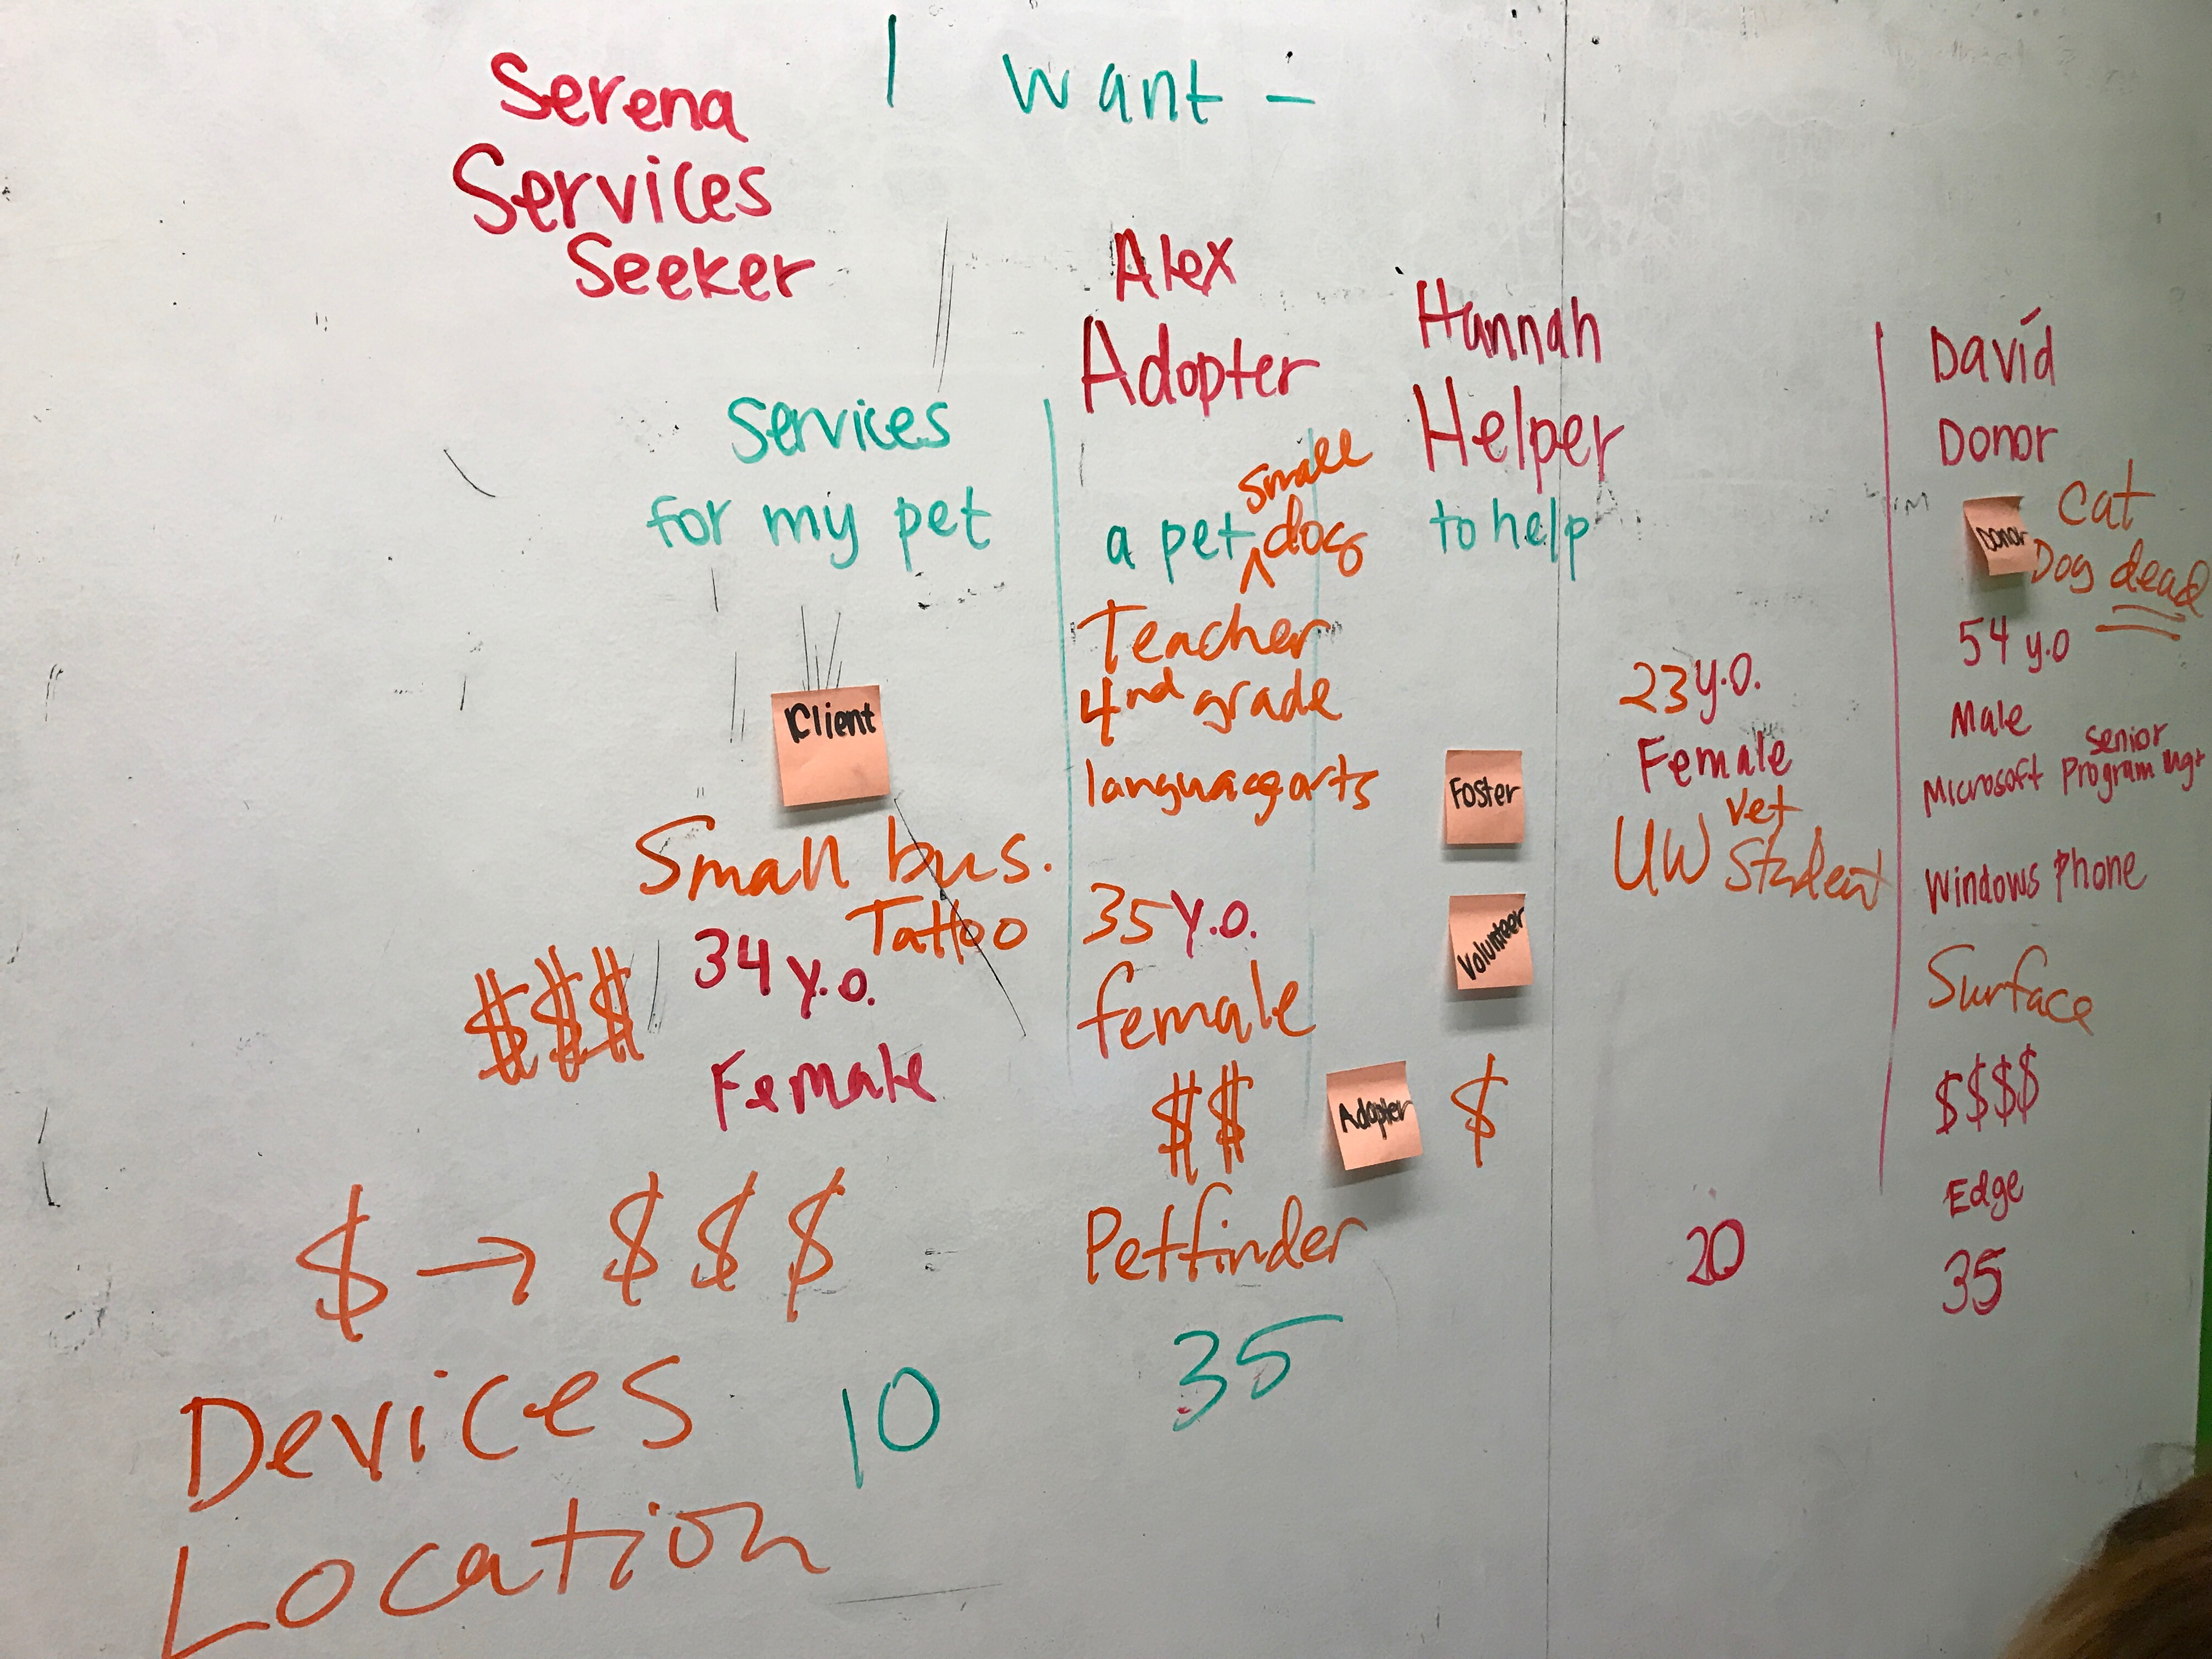 I want –
Serena
Services
Seeker
Services
for my pet
Client
Small bus.
Tattoo
$$$
34 y.o.
Female
$ → $$$
Devices
10
Location
Alex
Adopter
small
a pet ^ dog
Teacher
4nd grade
language arts
35 y.o.
female
$$
Adopter
Petfinder
35
Hannah
Helper
to help
Foster
Volunteer
$
23 y.o.
Female
vet
UW Student
20
David
Donor
Donor
Cat
Dog dead
54 y.o
Male
senior
Microsoft Program Mgr
Windows Phone
Surface
$$$$
Edge
35